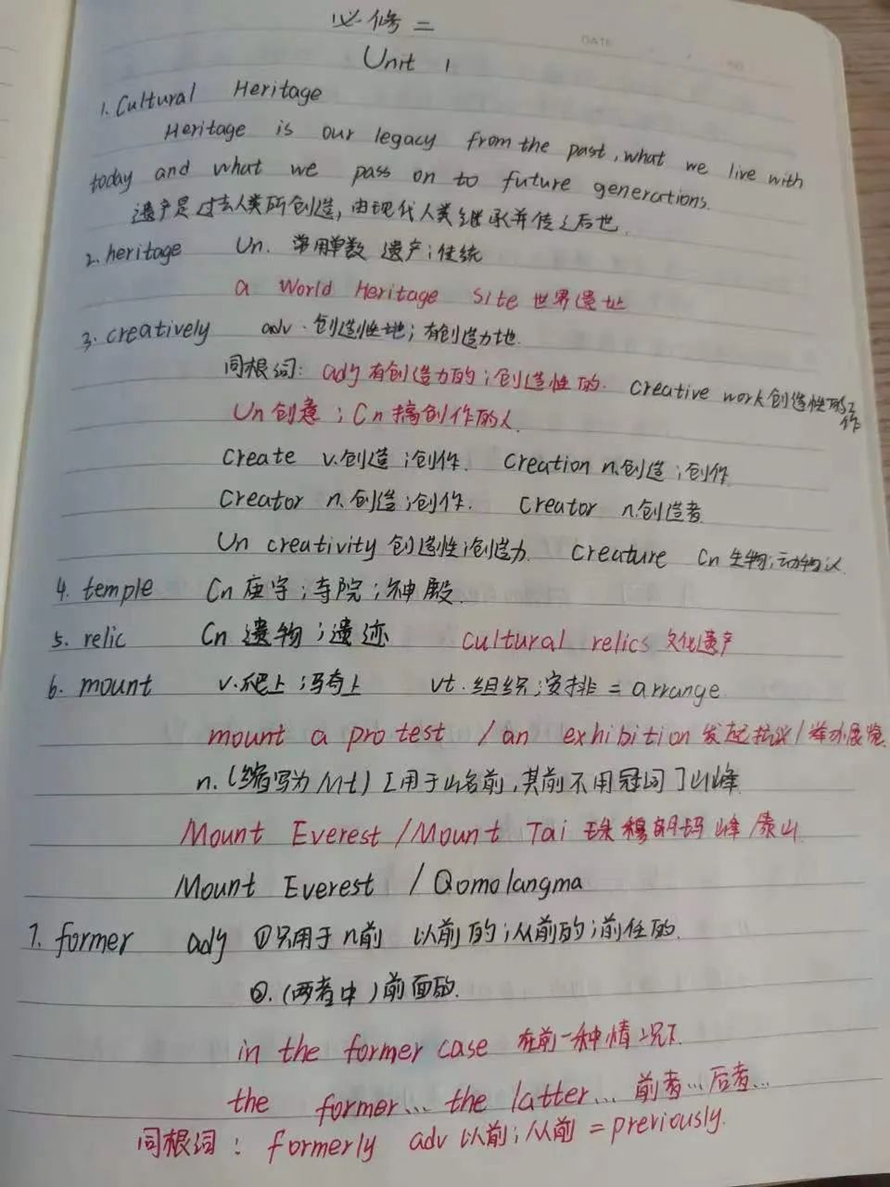 必修二
DATE
Unit 1
1. Cultural Heritage
Heritage is our legacy from the past, what we live with
today and what we pass on to future generations.
遗产是过去人类所创造,由现代人类继承并传之后世.
2. heritage Un. 常用单数 遗产;传统
a World Heritage Site 世界遗址
3. creatively adv. 创造性地;有创造力地.
同根词: ady 有创造力的;创造性的. creative work 创造性的工作
Un 创意; Cn 搞创作的人.
create v.创造;创作. creation n.创造;创作
creator n.创造;创作. creator n.创造者
Un creativity 创造性;创造力. creature Cn 生物;动物;人
4. temple Cn 庙宇;寺院;神殿.
5. relic Cn 遗物;遗迹 cultural relics 文化遗产
6. mount v.爬上;骑上 vt.组织;安排 = arrange
mount a protest / an exhibition 发起抗议/举办展览.
n. (缩写为Mt) [用于山名前,其前不用冠词]山峰
Mount Everest / Mount Tai 珠穆朗玛峰/泰山
Mount Everest / Qomolangma
7. former ady ①只用于n前 以前的;从前的;前任的.
②. (两者中)前面的.
in the former case 在前一种情况下.
the former... the latter... 前者...后者...
同根词: formerly adv 以前;从前 = previously.